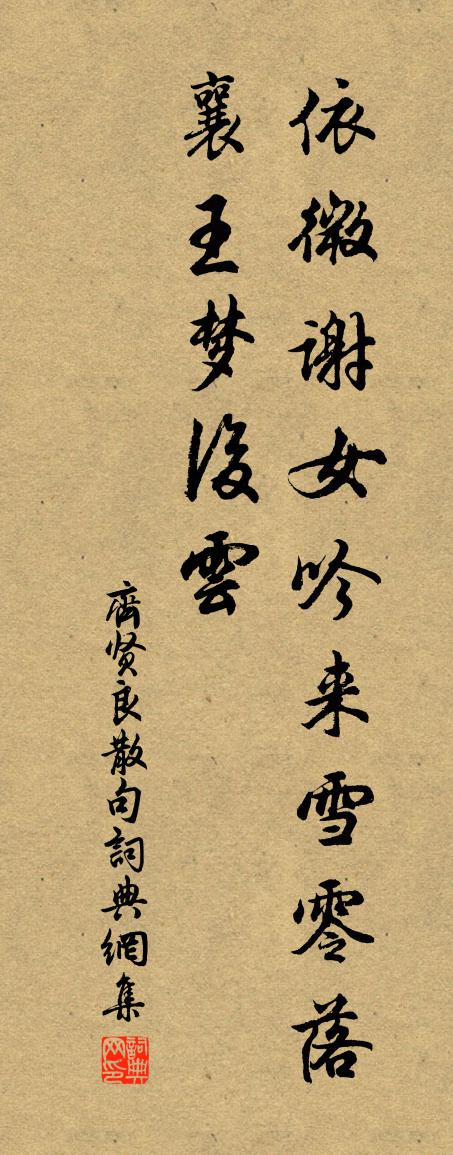 依微谢女吟来雪零落
襄王梦后雲
齊贤良散句詞典網集
詞典网印